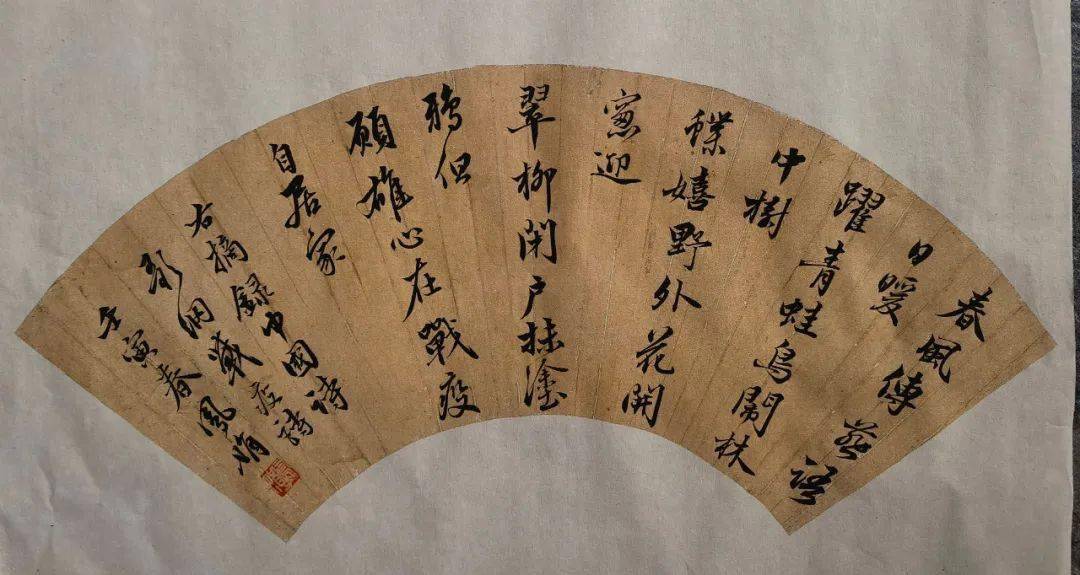 春風傳燕語
日暖
躍青蛙鳥鬧林
中樹
蝶嬉野外花開
窻迎
翠柳閉戶抹塗
鴉但
願雄心在戰疫
自居家
右摘録中國詩
歌網戰疫詩
壬寅春風娟